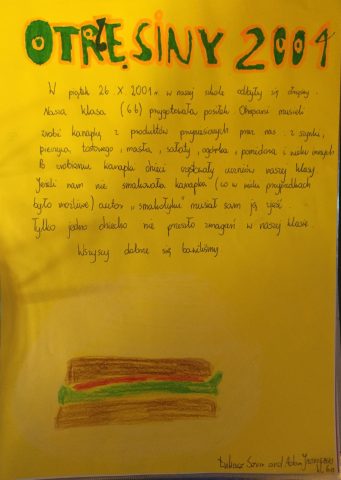 OTRZĘSINY 2001
W piątek 26 X 2001r w naszej szkole odbyły się otrzęsiny.
Nasza klasa (6b) przygotowała posiłek. Otrzęsani musieli
zrobić kanapkę z produktów przyniesionych przez nas: z szynki,
pieczywa tostowego, masła, sałaty, ogórka, pomidora i wielu innych.
Po zrobieniu kanapki dzieci częstowały uczniów naszej klasy.
Jeżeli nam nie smakowała kanapka (co w wielu przypadkach
było możliwe) autor „smakołyku" musiał sam ją zjeść.
Tylko jedno dziecko nie przeszło zmagań w naszej klasie.
Wszyscy dobrze się bawiliśmy
Łukasz and Adam